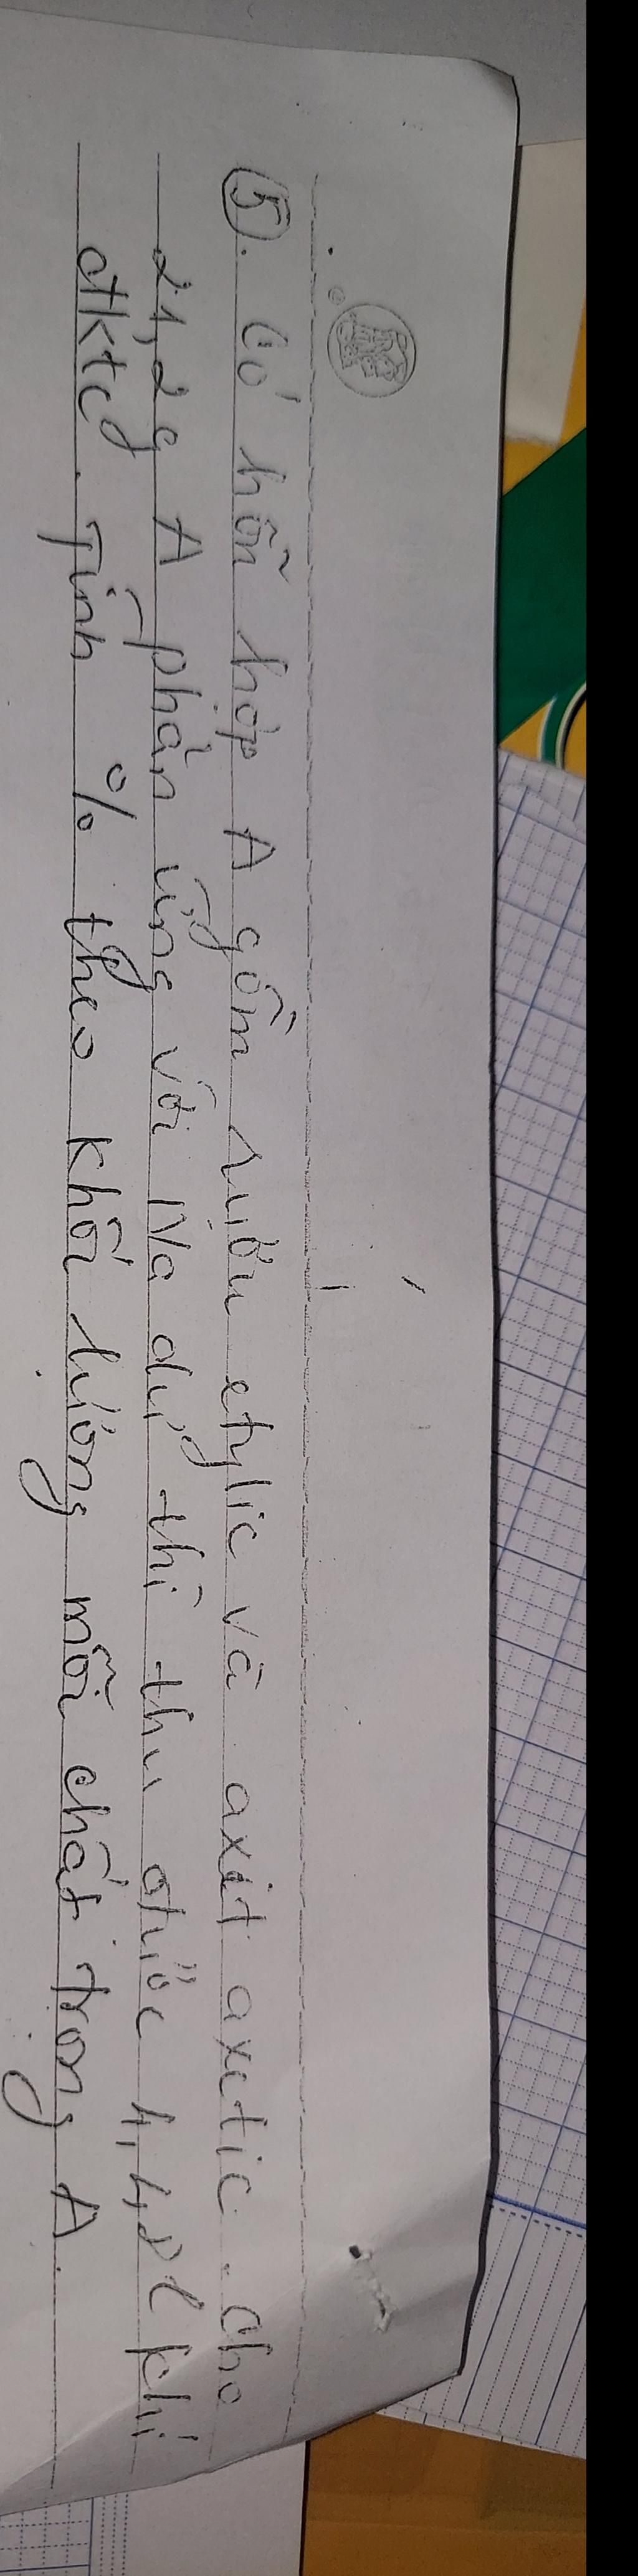 5. Có hỗn hợp A gồm rượu etylic và axit axetic. Cho
21,2g A phản ứng với Na dư thì thu được 4,48l khí
đktc. Tính % theo khối lượng mỗi chất trong A.